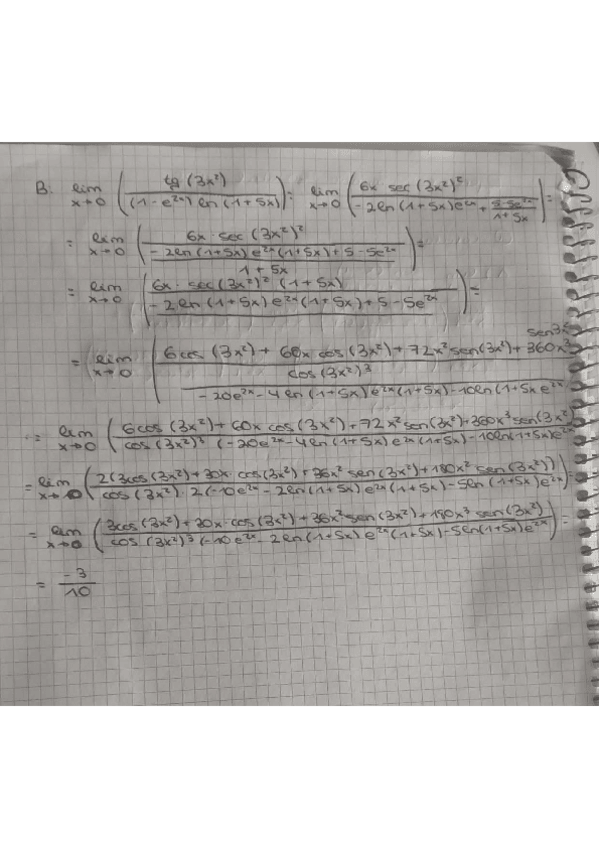 B. lim x→0 (tg (3x²) / (1 - e²ˣ) ln (1+5x)) = lim x→0 (6x sec (3x²)² / -2ln (1+5x)e²ˣ + (5-5e²ˣ)/(1+5x)) =
= lim x→0 (6x · sec (3x²)² / ((-2ln (1+5x) e²ˣ (1+5x) + 5 - 5e²ˣ) / (1+5x))) =
= lim x→0 (6x · sec (3x²)² (1+5x) / -2ln (1+5x) e²ˣ (1+5x) + 5 - 5e²ˣ) =
= lim x→0 ((6cos (3x²) + 60x cos (3x²) + 72x² sen (3x²) + 360x³ sen 3x² / cos (3x²)³) / -20e²ˣ - 4ln (1+5x) e²ˣ (1+5x) - 10ln (1+5x e²ˣ
= lim x→0 (6cos (3x²) + 60x cos (3x²) + 72x² sen (3x²) + 360x³ sen (3x²) / cos (3x²)³ (-20e²ˣ - 4ln (1+5x) e²ˣ (1+5x) - 10ln (1+5x)e²ˣ
= lim x→0 (2(3cos (3x²) + 30x · cos (3x²) + 36x² sen (3x²) + 180x³ sen (3x²)) / cos (3x²)³ · 2(-10e²ˣ - 2ln (1+5x) e²ˣ (1+5x) - 5ln (1+5x) e²ˣ) =
= lim x→0 (3cos (3x²) + 30x · cos (3x²) + 36x² sen (3x²) + 180x³ sen (3x²) / cos (3x²)³ (-10e²ˣ - 2ln (1+5x) e²ˣ (1+5x) - 5ln (1+5x) e²ˣ) =
= -3 / 10